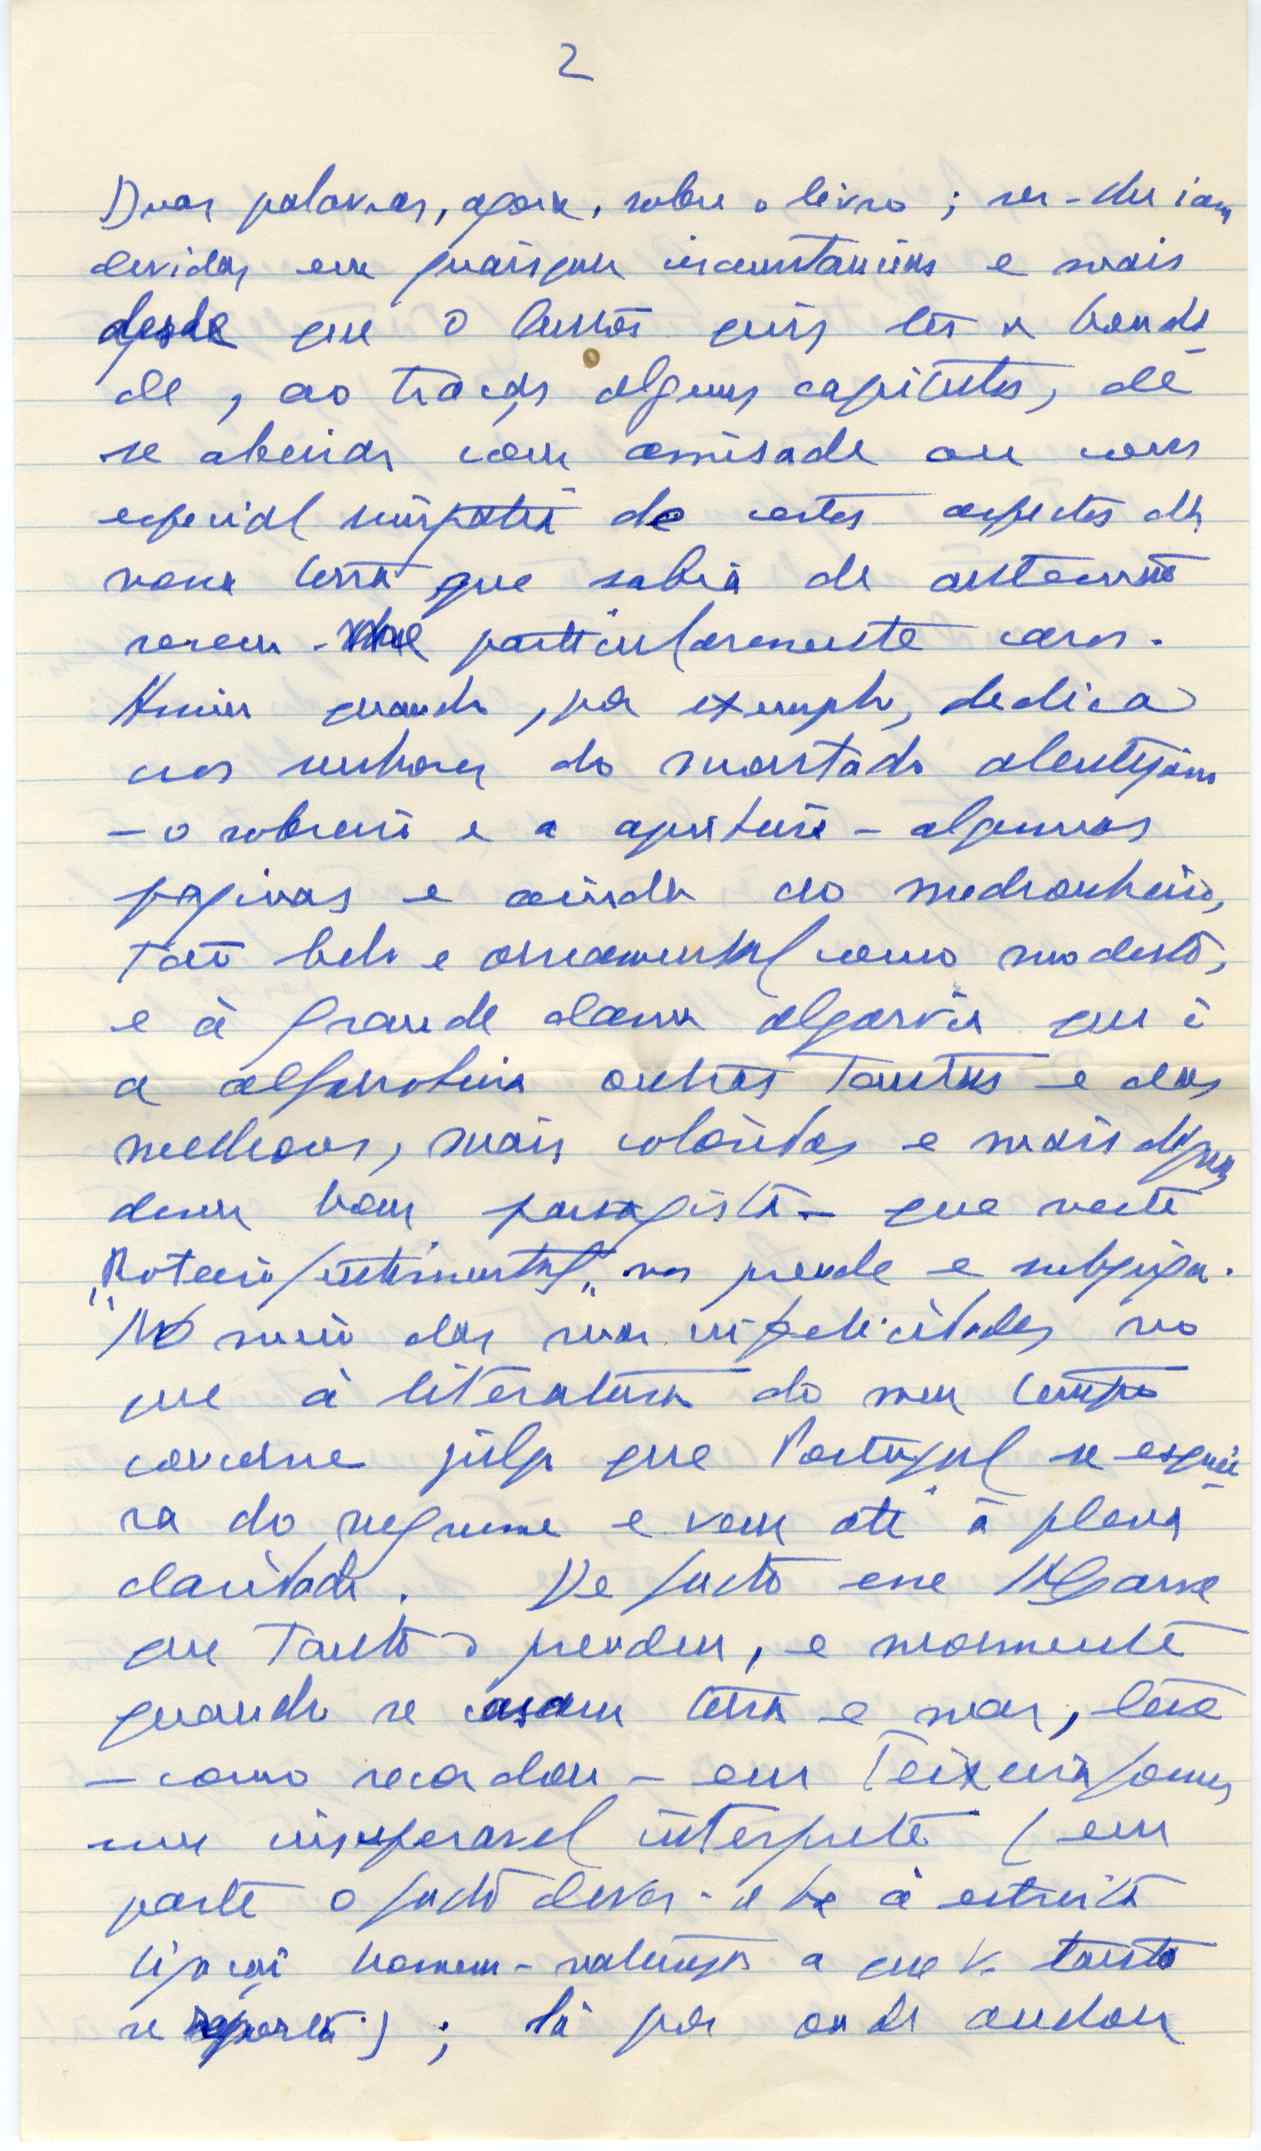 2
Duas palavras, agora, sobre o livro; ser-lhe iam
devidas em quaisquer circunstancias e mais
desde que o Autor quis ter a bonda
de, ao traçar alguns capitulos, de
se abeirar com amisade ou com
especial simpatia de certos aspectos da
nossa terra que sabia de antemão
serem-me particularmente caros.
Assim quando, por exemplo, dedica
aos senhores do montado alentejano
- o sobreiro e a azinheira - algumas
paginas e ainda ao medronheiro,
tão belo e ornamental como modesto,
e à grande dama algarvia que é
a alfarrobeira outras tantas e das
melhores, mais coloridas e mais dignas
dum bom paisagista - que neste
"Roteiro Sentimental" nos prende e subjuga.
No meio das suas infelicidades no
que à literatura do meu tempo
concerne julgo que Portugal se esquei
ra do negrume e vem até à plena
claridade. De facto esse Algarve
que tanto o prendeu, e mormente
quando se casam terra e mar, teve
- como recordou - em Teixeira Gomes
um insuperavel interprete (em
parte o facto dever-se á à estreita
ligação homem-natureza a que V. tanto
se reporta); lá por onde andou